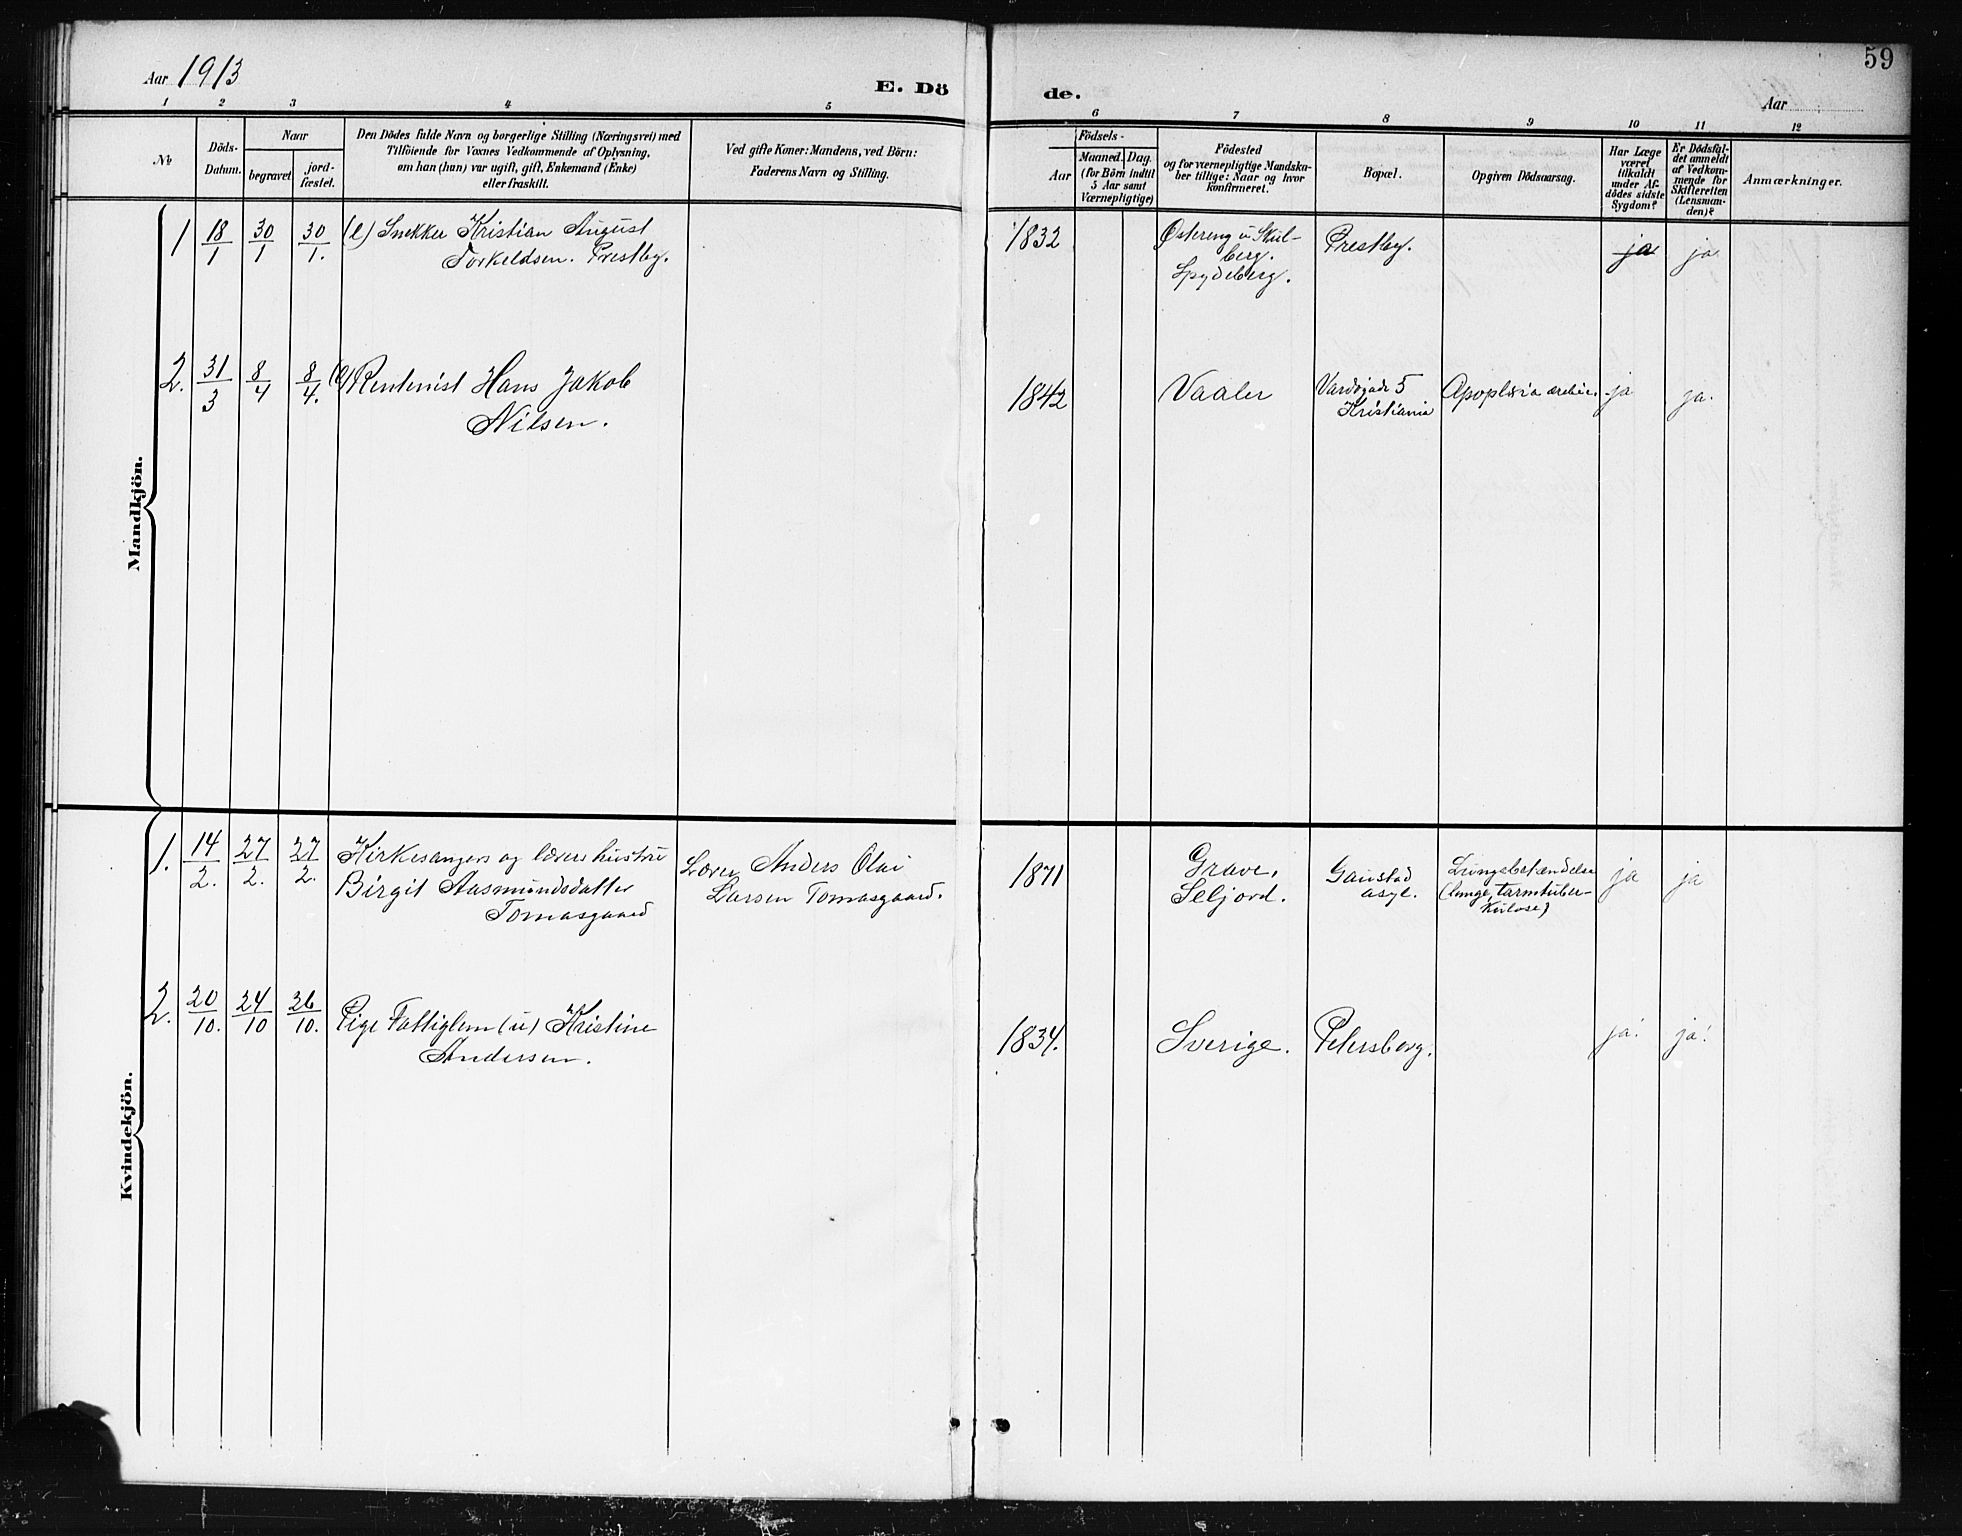 59
Aar 1913
E. Dö
de.
Aar
1 2 3 4 5
6 7 8 9 10 11 12
№
Döds-
Datum.
Naar
begravet
jord-
fæstet.
Den Dödes fulde Navn og borgerlige Stilling (Næringsvei) med
Tilföiende for Voxnes Vedkommende af Oplysning,
om han (hun) var ugift, gift, Enkemand (Enke)
eller fraskilt.
Ved gifte Koner: Mandens, ved Börn:
Faderens Navn og Stilling.
Födsels-
Aar
Maaned. Dag.
(for Börn indtil
5 Aar samt
Værnepligtige)
Födested
og for værnepligtige Mandska-
ber tillige: Naar og hvor
konfirmeret.
Bopæl.
Opgiven Dödsaarsag.
Har Læge
været
tilkaldt
under Af-
dödes sidste
Sygdom?
Er Dödsfal-
det anmeldt
af Vedkom-
mende for
Skifteretten
(Lensman-
den)?
Anmærkninger.
Mandkjön.
1 18/1 30/1 30/1. (e) Snekker Kristian August
Torkeldsen. Prestby.
1832
Østereng u Skul-
berg.
Spydeberg.
Prestby.
ja
ja
2. 31/3 8/4 8/4. (e) Rentenist Hans Jakob
Nilsen.
1842
Vaaler
Vardøgade 5
Kristiania
Apoplexia
ja
ja.
Kvindekjön.
1. 14/2. 27/2. 27/2. Kirkesangers og lærers hustru
Birgit Aasmundsdatter
Tomasgaard
Lærer Anders Olai
Larsen Tomasgaard.
1871
Grave,
Seljord.
Gaustad
asyl.
Lungebetændelse
(lunge, tarmtuber-
kulose)
ja
ja
2. 20/10. 24/10 26/10. Pige Fattiglem (u) Kristine
Andersen.
1834.
Sverige.
Petersborg.
ja.
ja.